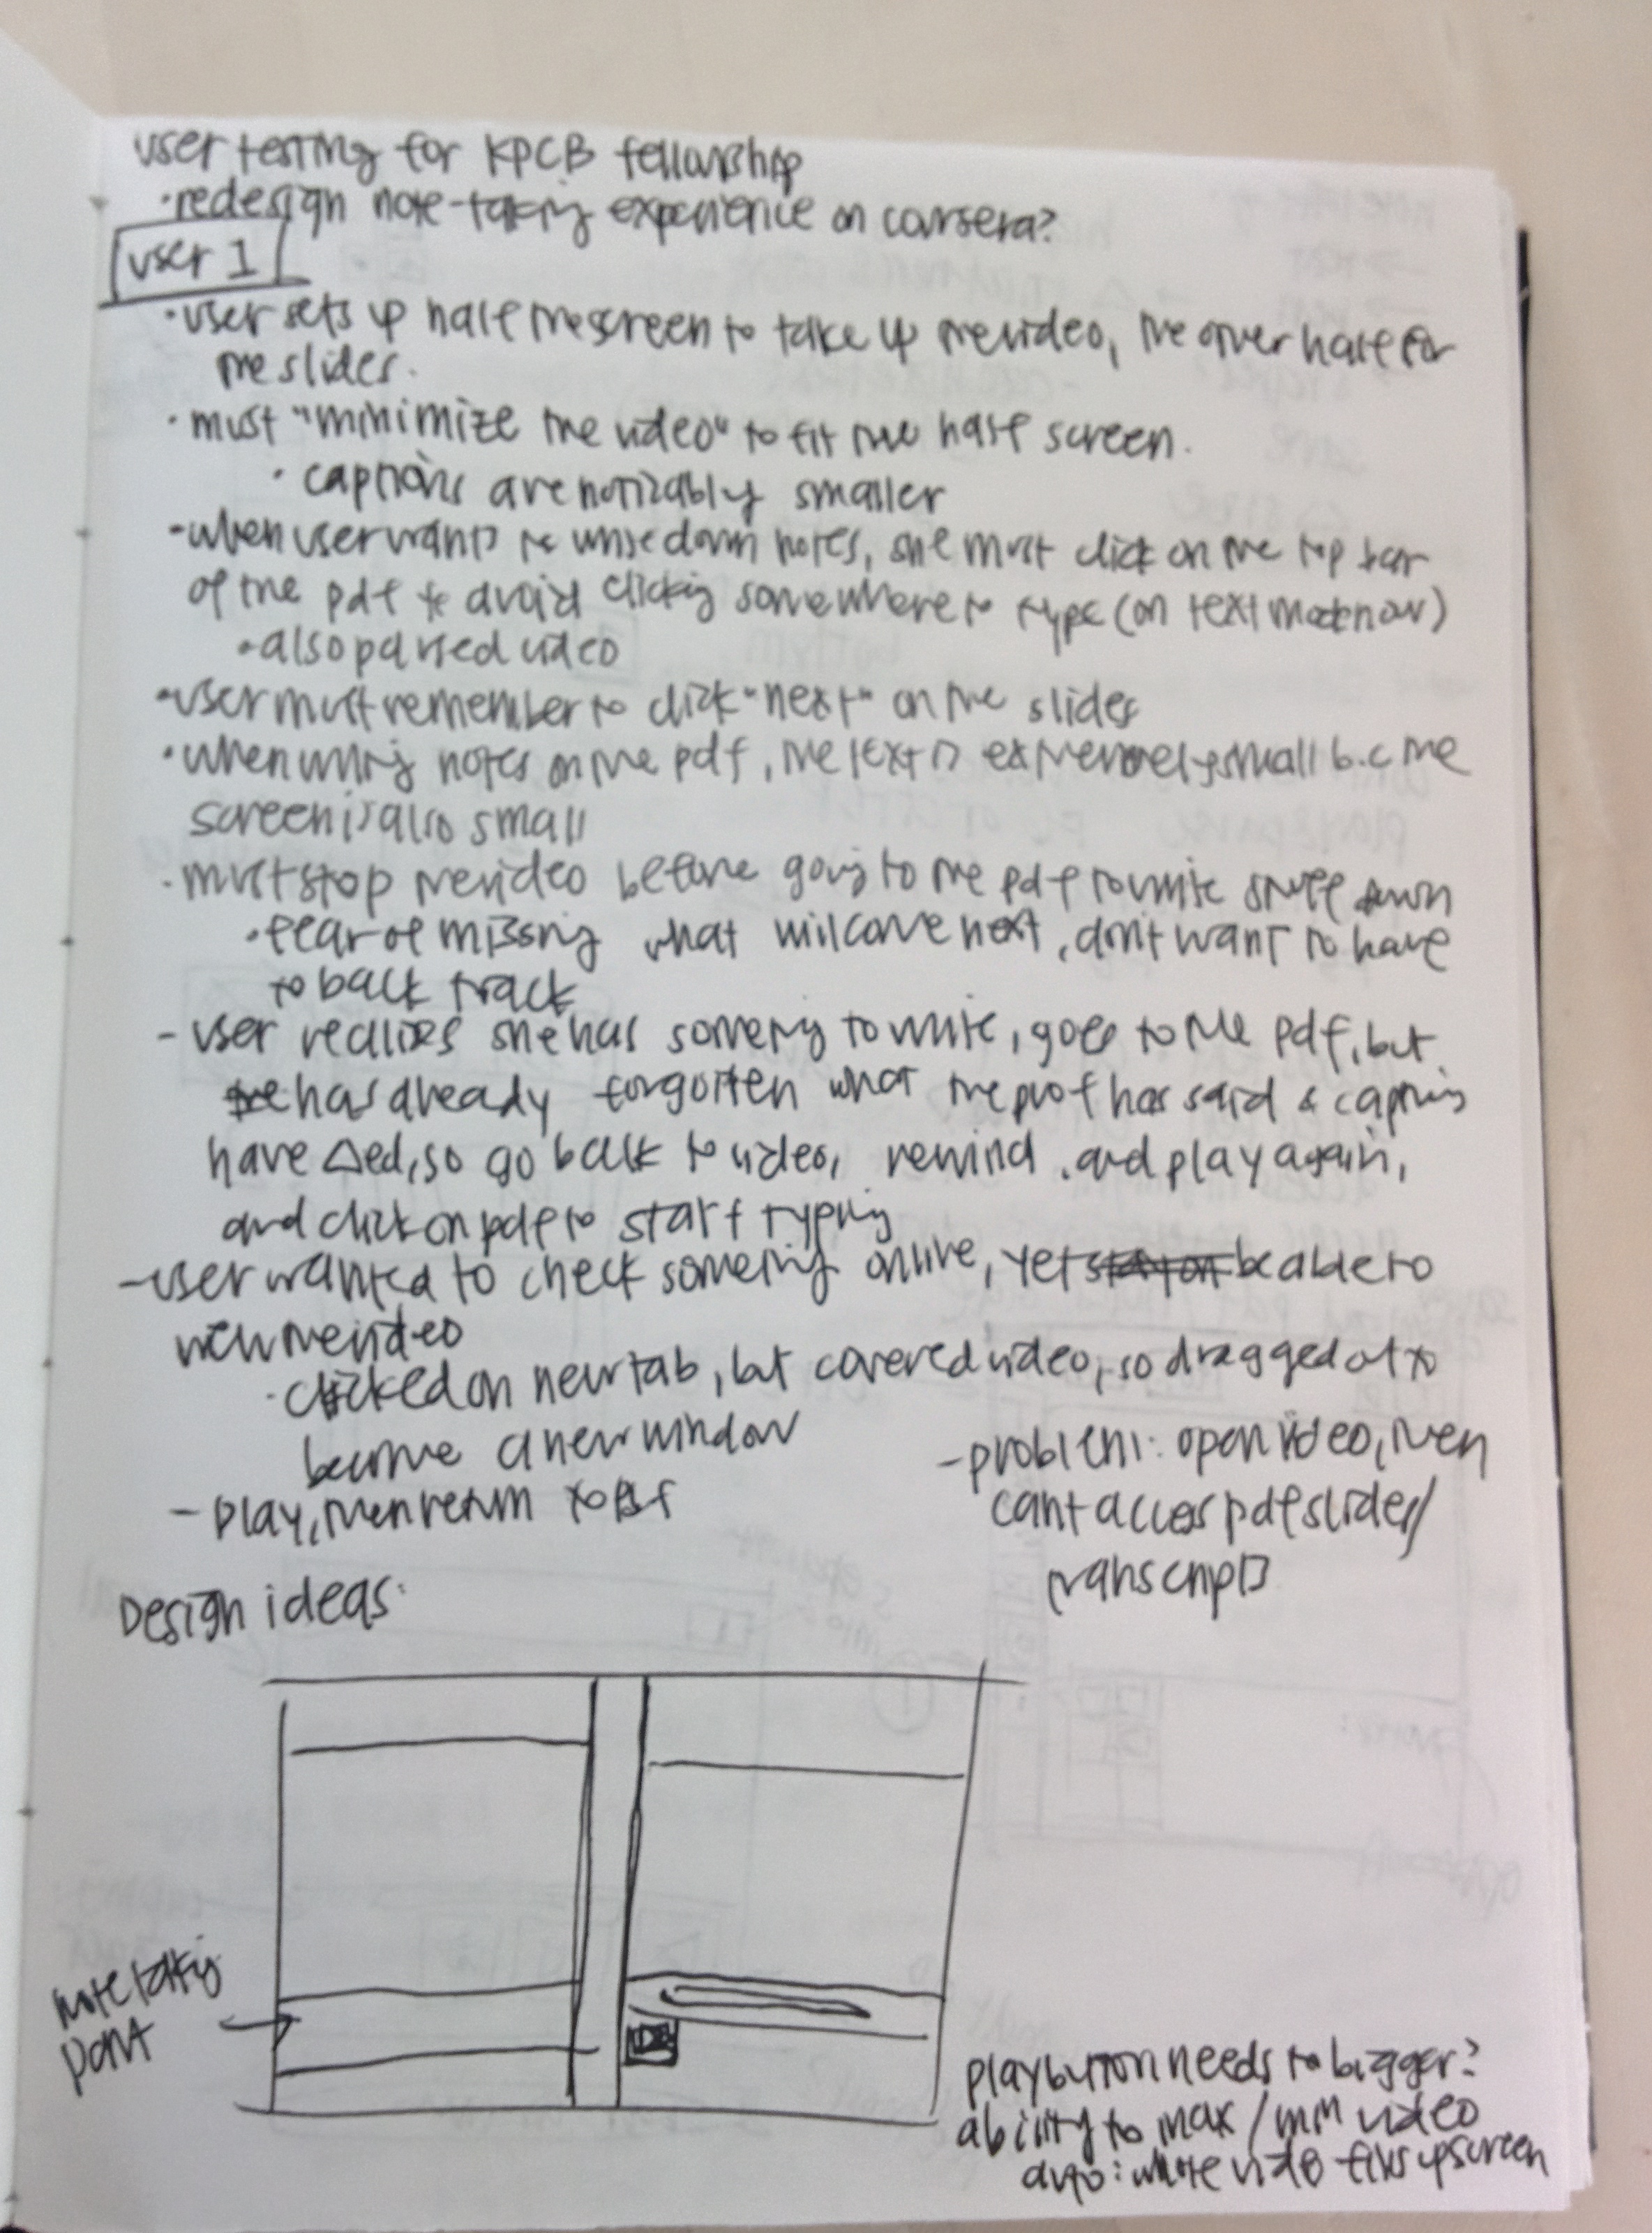 user testing for KPCB fellowship
· redesign note-taking experience on coursera?
user 1
· user sets up half the screen to take up the video, the other half for
the slides.
· must "minimize the video" to fit the half screen.
· captions are noticably smaller
- when user wants to write down notes, she must click on the top bar
of the pdf to avoid clicking somewhere to type (on text mode now)
· also paused video
· user must remember to click "next" on the slides
· when writing notes on the pdf, the text is extremely small b.c the
screen is also small
· must stop the video before going to the pdf to write stuff down
· fear of missing what will come next, don't want to have
to back track
- user realizes she has something to write, goes to the pdf, but
has already forgotten what the prof has said & captions
have Δed, so go back to video, rewind, and play again,
and click on pdf to start typing
- user wanted to check something online, yet be able to
view the video
· clicked on new tab, but covered video, so dragged out to
become a new window
- play, then return to pdf
- problem: open video, then
cant access pdf slides/
transcripts
Design ideas:
note taking
part
play button needs to bigger?
ability to max/min video
auto: whole video fills up screen